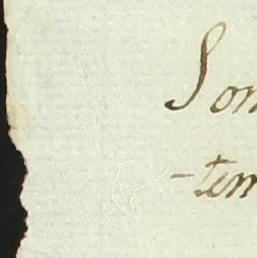 Som
-tem